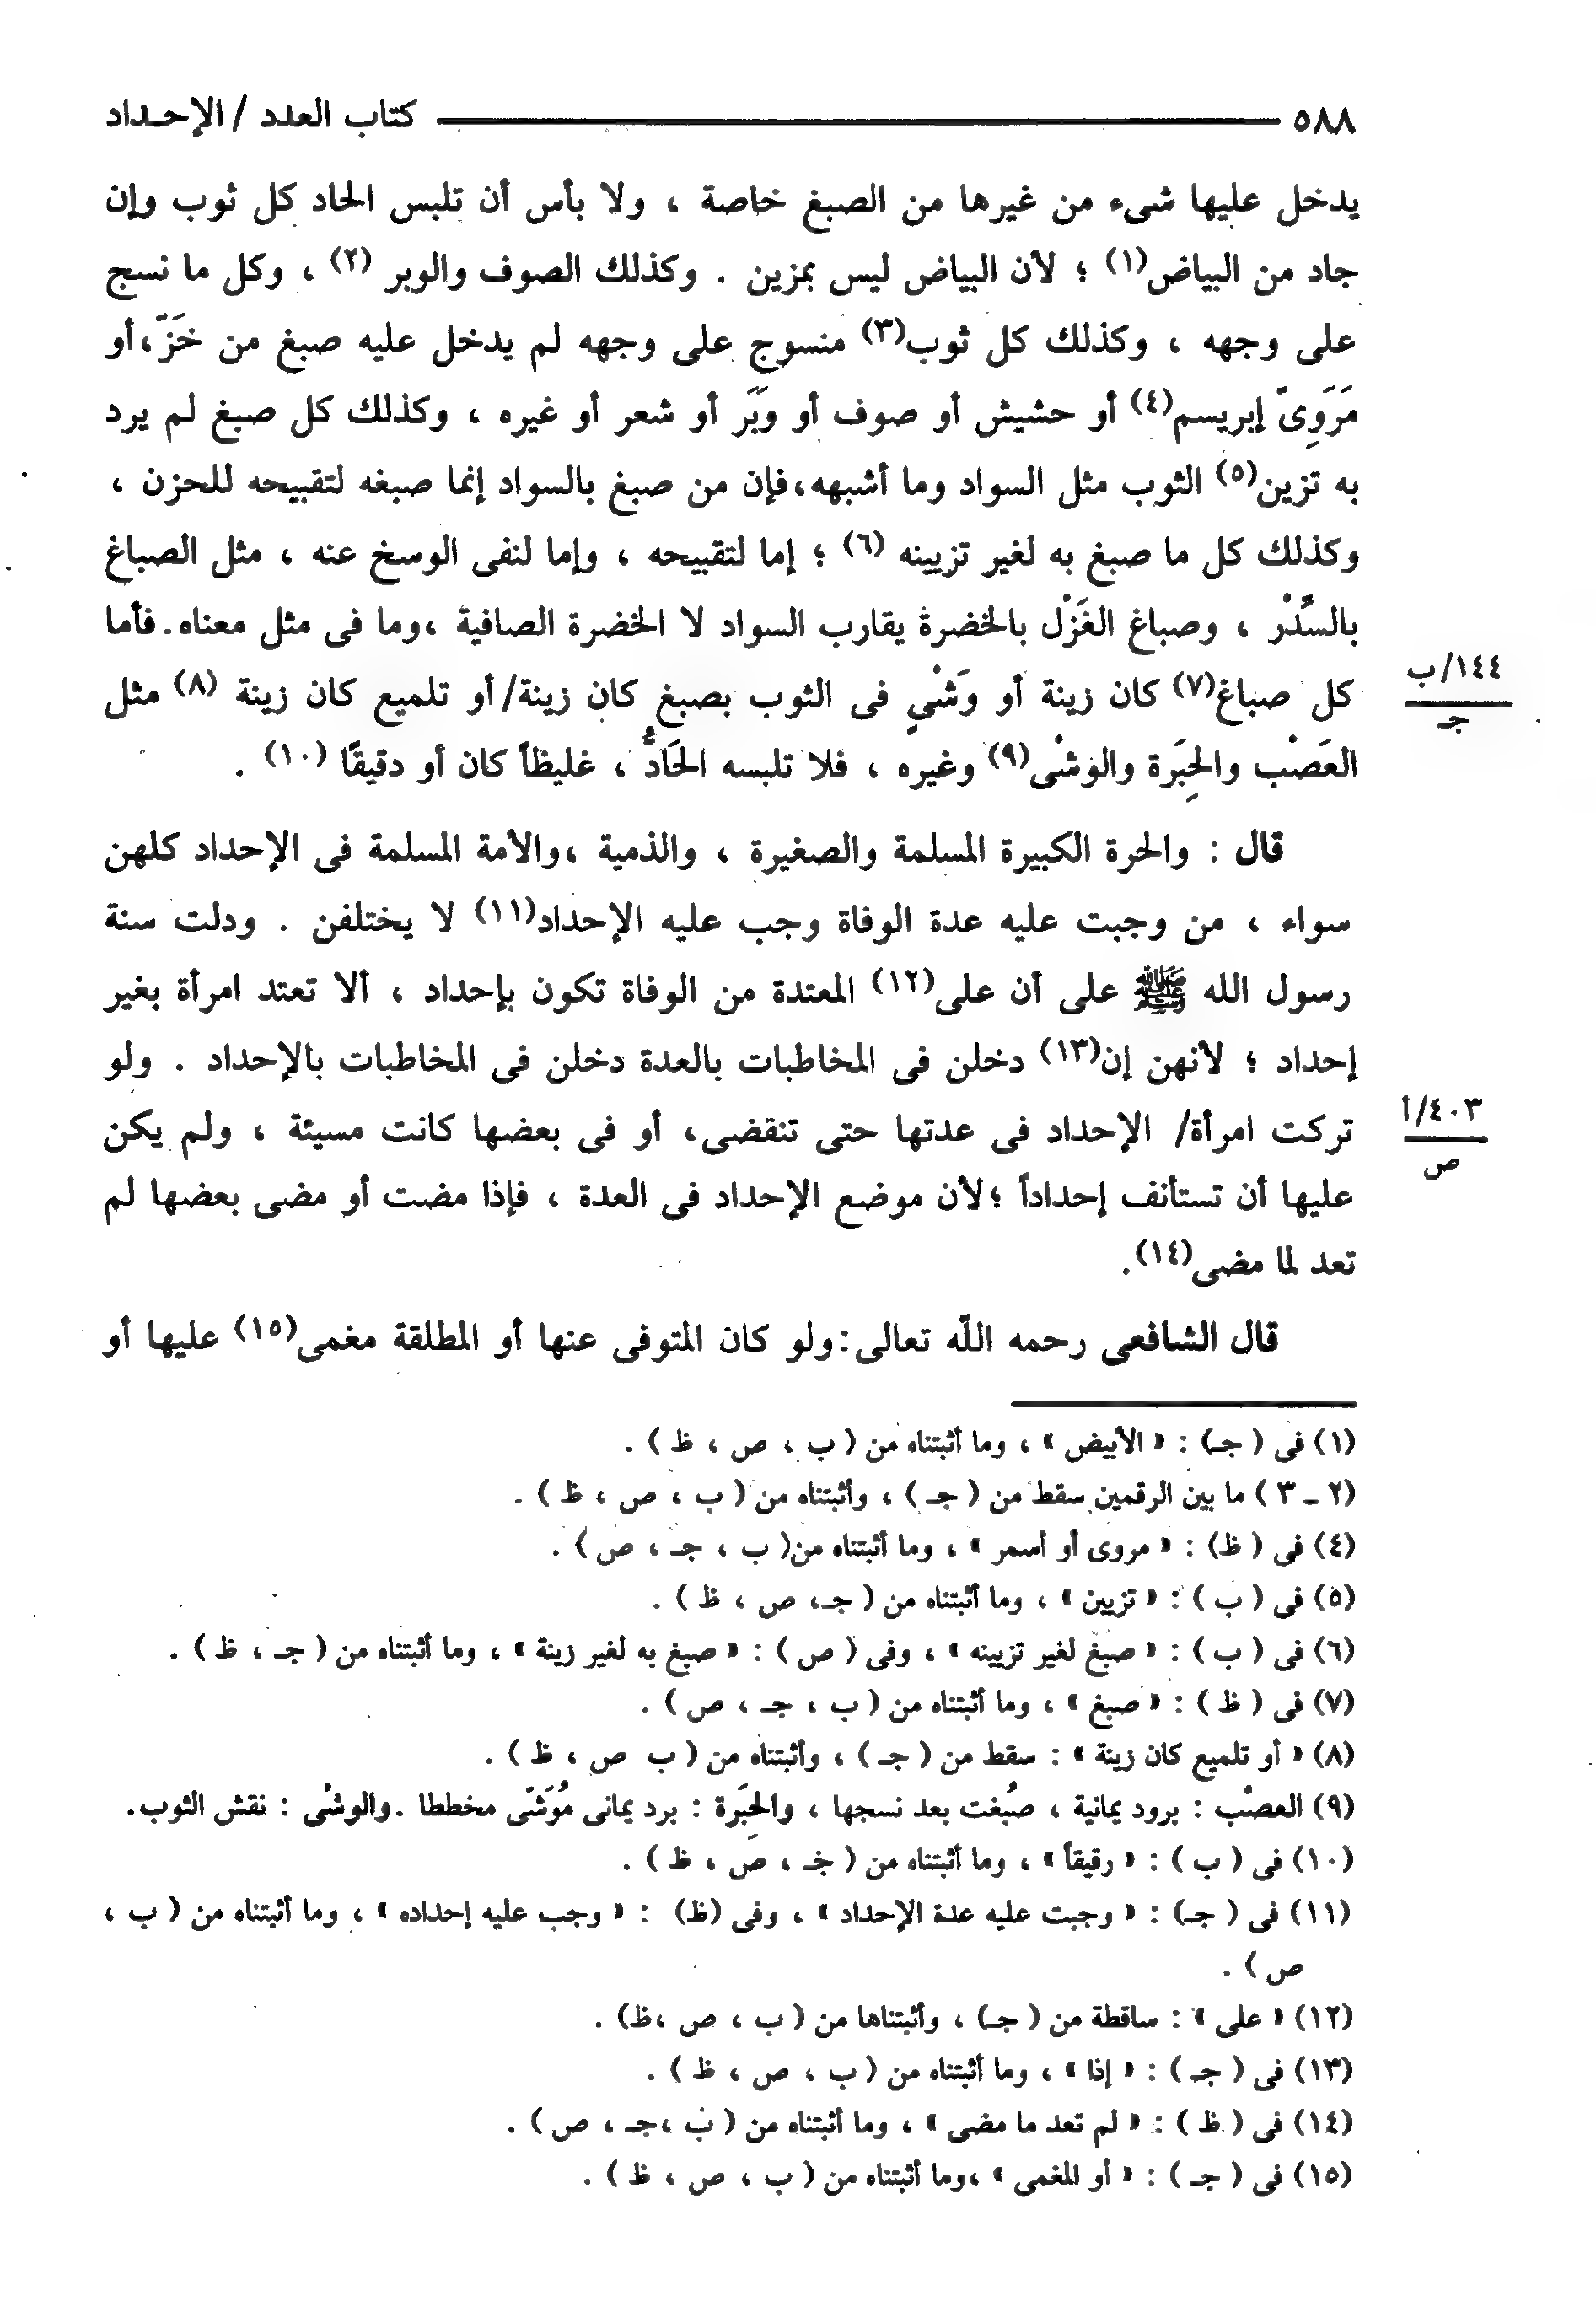 ٥٨٨ كتاب العدد / الإحـداد
يدخل عليها شىء من غيرها من الصبغ خاصة ، ولا بأس أن تلبس الحاد كل ثوب وإن
جاد من البياض(١) ؛ لأن البياض ليس بمزين . وكذلك الصوف والوبر (٢) ، وكل ما نسج
على وجهه ، وكذلك كل ثوب(٣) منسوج على وجهه لم يدخل عليه صبغ من خَزّ،أو
مَرَوِىّ إبريسم(٤) أو حشيش أو صوف أو وَبَر أو شعر أو غيره ، وكذلك كل صبغ لم يرد
به تزين(٥) الثوب مثل السواد وما أشبهه،فإن من صبغ بالسواد إنما صبغه لتقبيحه للحزن ،
وكذلك كل ما صبغ به لغير تزيينه (٦) ؛ إما لتقبيحه ، وإما لنفى الوسخ عنه ، مثل الصباغ
بالسِّدْر ، وصباغ الغَزْل بالخضرة يقارب السواد لا الخضرة الصافية ،وما فى مثل معناه.فأما
كل صباغ(٧) كان زينة أو وَشْىٍ فى الثوب بصبغ كان زينة/أو تلميع كان زينة (٨) مثل
١٤٤/ب
جـ
العَصْب والحِبَرة والوشْى(٩) وغيره ، فلا تلبسه الحَادُّ ، غليظاً كان أو دقيقًا (١٠) .
قال : والحرة الكبيرة المسلمة والصغيرة ، والذمية ،والأمة المسلمة فى الإحداد كلهن
سواء ، من وجبت عليه عدة الوفاة وجب عليه الإحداد(١١) لا يختلفن . ودلت سنة
رسول الله ﷺ على أن على(١٢) المعتدة من الوفاة تكون بإحداد ، ألا تعتد امرأة بغير
إحداد ؛ لأنهن إن(١٣) دخلن فى المخاطبات بالعدة دخلن فى المخاطبات بالإحداد . ولو
تركت امرأة/ الإحداد فى عدتها حتى تنقضى، أو فى بعضها كانت مسيئة ، ولم يكن
٤٠٣/أ
ص
عليها أن تستأنف إحداداً ؛لأن موضع الإحداد فى العدة ، فإذا مضت أو مضى بعضها لم
تعد لما مضى(١٤).
قال الشافعى رحمه اللّه تعالى:ولو كان المتوفى عنها أو المطلقة مغمى(١٥) عليها أو
(١) فى ( جـ) : « الأبيض » ، وما أثبتناه من ( ب ، ص ، ظ ) .
(٢ ـ ٣ ) ما بين الرقمين سقط من ( جـ ) ، وأثبتناه من ( ب ، ص ، ظ ) .
(٤) فى ( ظ) : « مروى أو أسمر » ، وما أثبتناه من( ب ، جـ ، ص ) .
(٥) فى ( ب ) : « تزيين » ، وما أثبتناه من ( جـ، ص ، ظ ) .
(٦) فى ( ب ) : « صبغ لغير تزيينه » ، وفى ( ص ) : « صبغ به لغير زينة » ، وما أثبتناه من ( جـ ، ظ ) .
(٧) فى ( ظ ) : « صبغ » ، وما أثبتناه من ( ب ، جـ ، ص ) .
(٨) « أو تلميع كان زينة » : سقط من ( جـ ) ، وأثبتناه من ( ب ص ، ظ ) .
(٩) العصْب : برود يمانية ، صُبغت بعد نسجها ، والحِبَرة : برد يمانى مُوَشّى مخططا .والوشْى : نقش الثوب.
(١٠) فى ( ب ) : « رقيقاً » ، وما أثبتناه من ( جـ ، ص ، ظ ) .
(١١) فى ( جـ) : « وجبت عليه عدة الإحداد » ، وفى (ظ) : « وجب عليه إحداده » ، وما أثبتناه من ( ب ،
ص ) .
(١٢) « على » : ساقطة من ( جـ) ، وأثبتناها من ( ب ، ص ،ظ) .
(١٣) فى ( جـ ) : « إذا » ، وما أثبتناه من ( ب ، ص ، ظ ) .
(١٤) فى ( ظ ) : « لم تعد ما مضى » ، وما أثبتناه من ( ب ،جـ ، ص ) .
(١٥) فى ( جـ ) : « أو المغمى » ،وما أثبتناه من ( ب ، ص ، ظ ) .